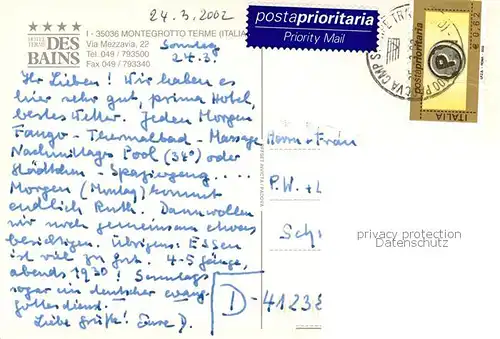 24.3.2002
★★★★
HOTEL TERME
DES BAINS
I - 35036 MONTEGROTTO TERME (ITALIA
Via Mezzavia, 22
Tel. 049 / 793500
Fax 049 / 793340
postaprioritaria
Priority Mail
€ 0,62
P
ITALIA
Sonntag
24.3.
Ihr Lieben! Wir haben es
hier sehr gut, prima Hotel,
bestes Wetter. Jeden Morgen
Fango - Thermalbad - Massage
Nachmittags Pool (34°) oder
Städtchen - Spaziergang ....
Morgen (Montag) kommt
endlich Ruth. Dann wollen
wir noch gemeinsam etwas
besichtigen. Übrigens: Essen
ist viel zu gut. 4-5 Gänge,
abends 19³⁰! Sonntags
sogar ein deutscher evang.
Gottesdienst.
Liebe Grüße! Eure D.
Herrn + Frau
P.W. + L
Sch
D-41238
privacy protection
Datenschutz